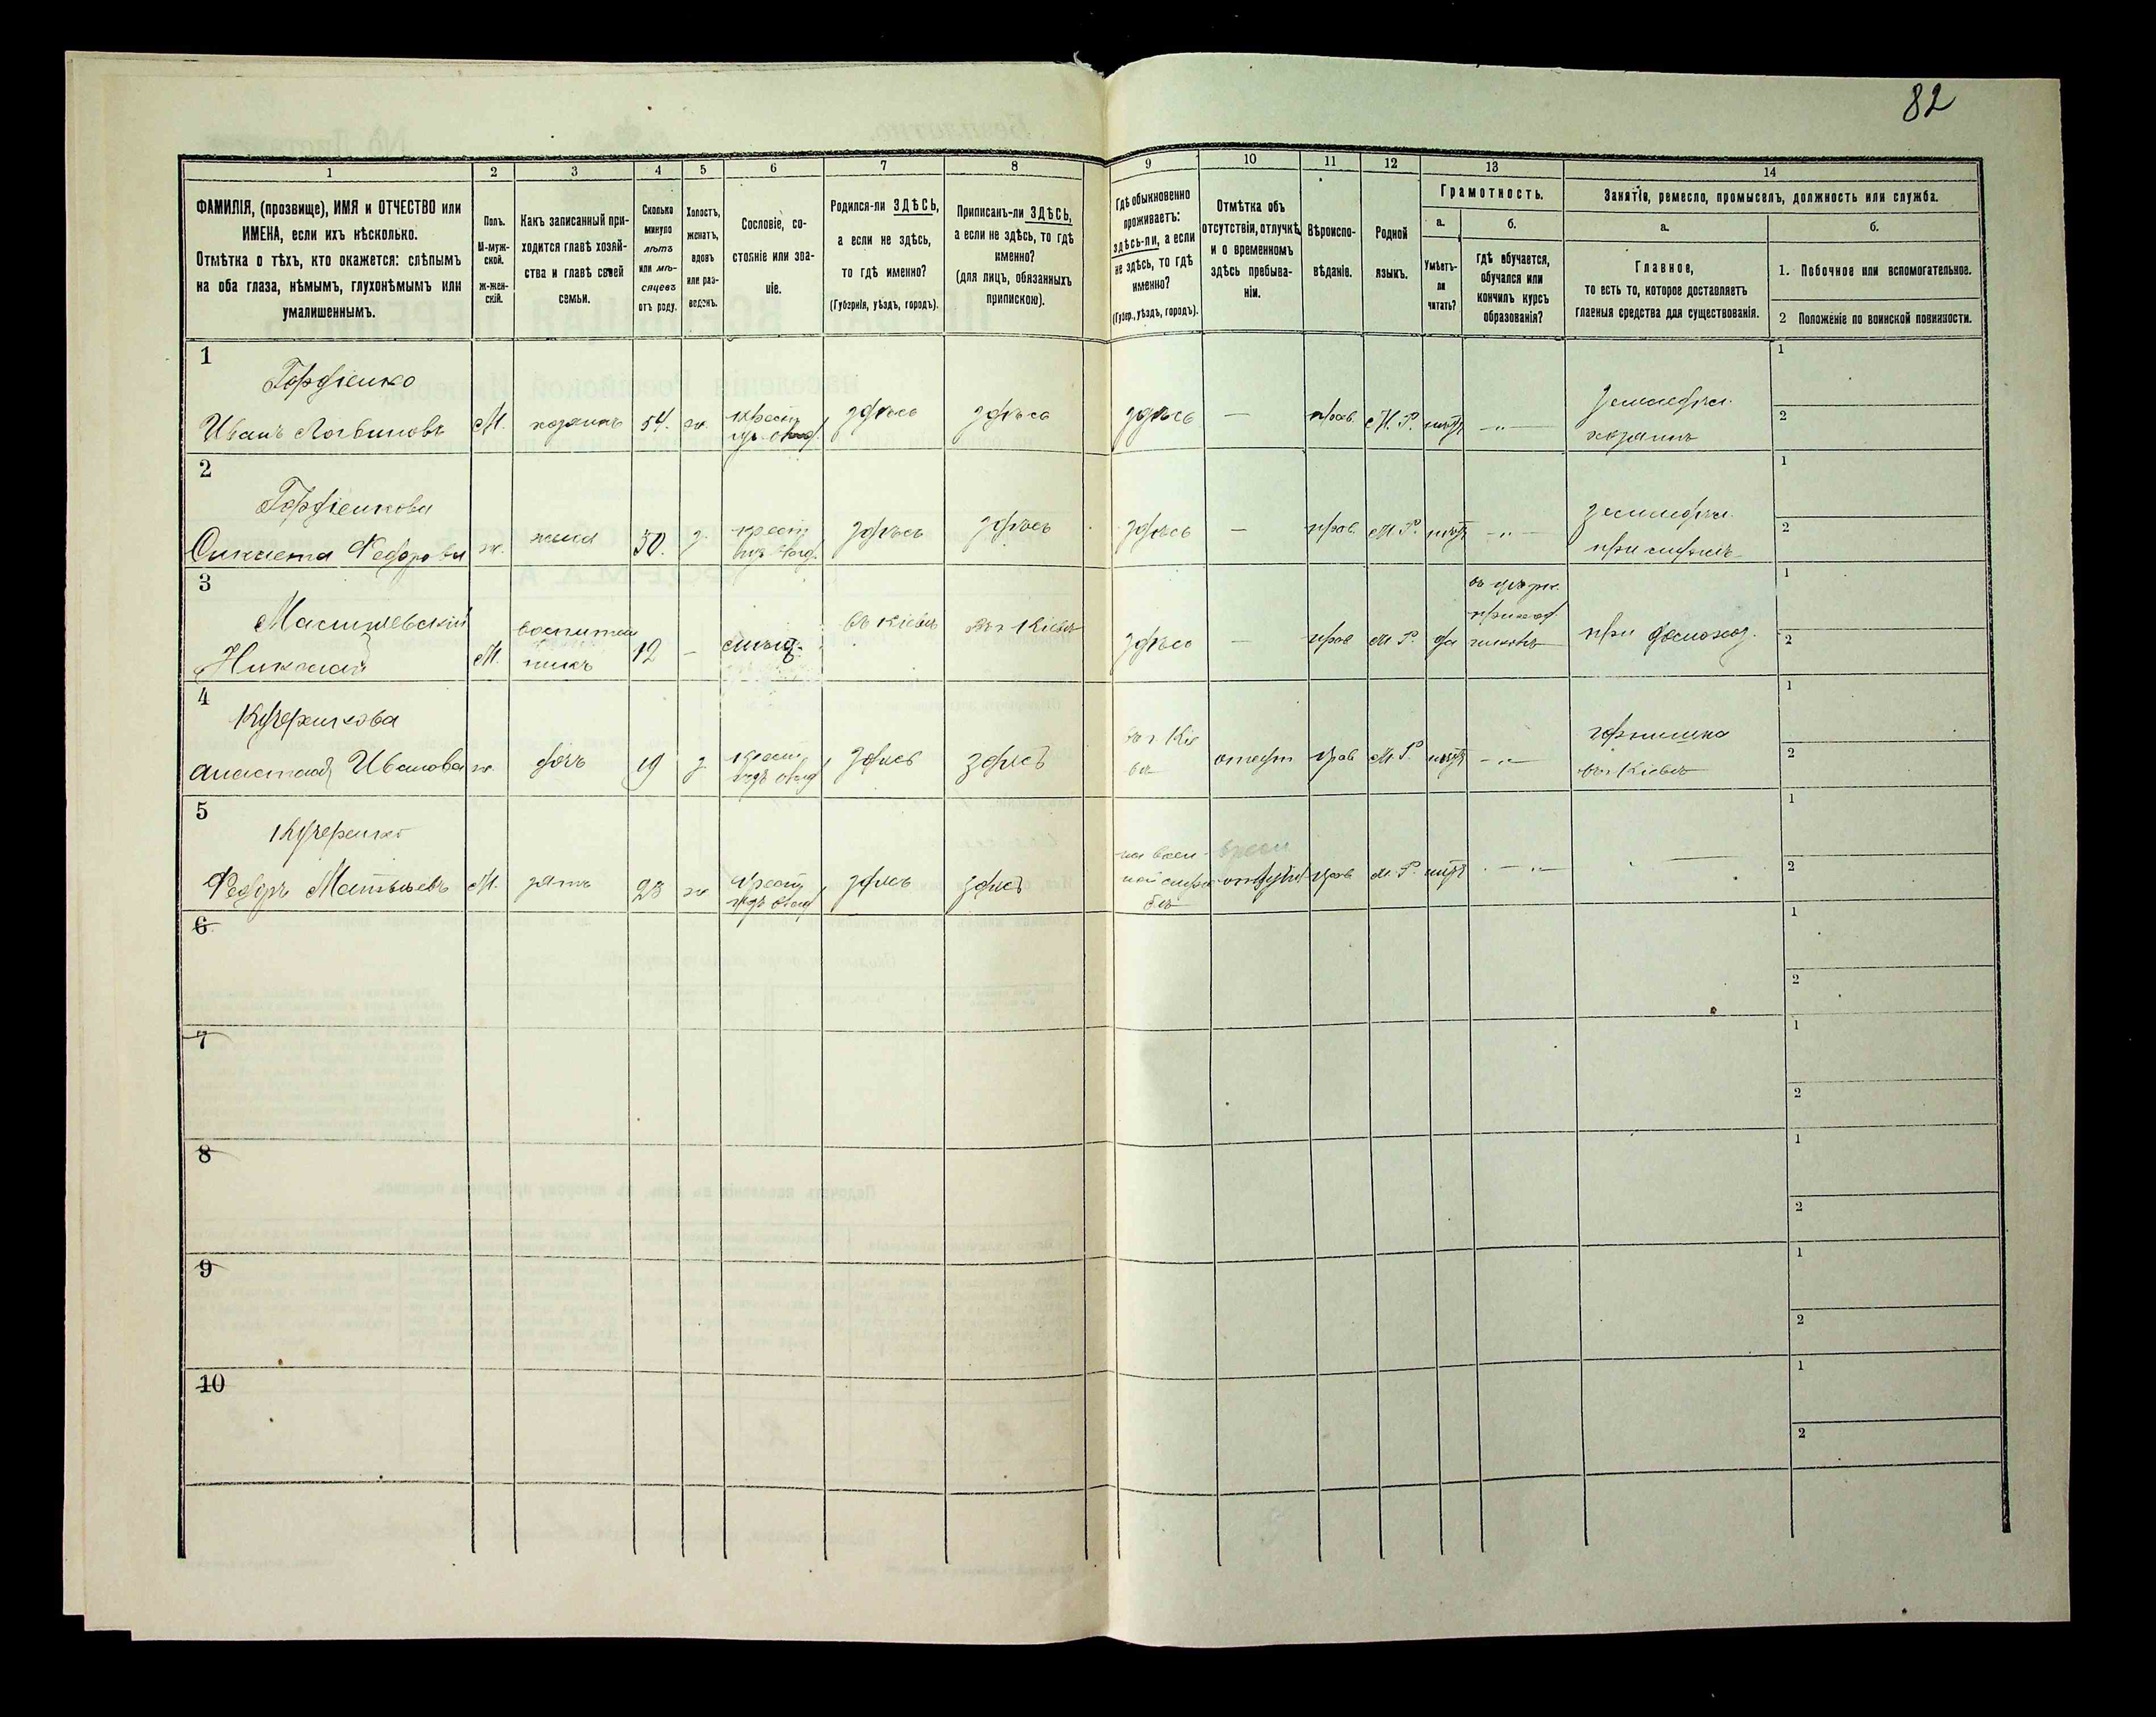 82
1
2
3
4
5
6
7
8
9
10
11
12
13
14
ФАМИЛІЯ, (прозвище), ИМЯ и ОТЧЕСТВО или
ИМЕНА, если ихъ нѣсколько.
Отмѣтка о тѣхъ, кто окажется: слѣпымъ
на оба глаза, нѣмымъ, глухонѣмымъ или
умалишеннымъ.
Полъ.
М-муж-
ской.
Ж-жен-
скій.
Какъ записанный при-
ходится главѣ хозяй-
ства и главѣ своей
семьи.
Сколько
минуло
лѣтъ
или мѣ-
сяцевъ
отъ роду.
Холостъ,
женатъ,
вдовъ
или раз-
веденъ.
Сословіе, со-
стояніе или зва-
ніе.
Родился-ли ЗДѢСЬ,
а если не здѣсь,
то гдѣ именно?
(Губернія, уѣздъ, городъ).
Приписанъ-ли ЗДѢСЬ,
а если не здѣсь, то гдѣ
именно?
(для лицъ, обязанныхъ
припискою).
Гдѣ обыкновенно
проживаетъ:
здѣсь-ли, а если
не здѣсь, то гдѣ
именно?
(Губер., уѣздъ, городъ).
Отмѣтка объ
отсутствіи, отлучкѣ
и о временномъ
здѣсь пребыва-
ніи.
Вѣроиспо-
вѣданіе.
Родной
языкъ.
Грамотность.
а.
Умѣетъ-
ли
читать?
б.
гдѣ обучается,
обучался или
кончилъ курсъ
образованія?
Занятіе, ремесло, промыселъ, должность или служба.
а.
Главное,
то есть то, которое доставляетъ
главныя средства для существованія.
б.
1. Побочное или вспомогательное.
2 Положеніе по воинской повинности.
1
Гордіенко
Иванъ Логвиновъ
М.
хозяинъ
54.
ж.
крест
здѣсь
здѣсь
здѣсь
—
прав.
М. Р.
нѣтъ
— „ —
земледѣл.
хозяинъ
1
2
2
Гордіенкова
Федорова
ж.
жена
50.
з.
крест
здѣсь
здѣсь
здѣсь
—
прав.
М. Р.
нѣтъ
— „ —
земледѣл.
1
2
3
Николай
М.
воспитан
никъ
12
—
въ Кіевѣ
въ г Кіевѣ
здѣсь
—
прав
М. Р.
да
приход.
при
1
2
4
Кучеренкова
Анастасія Иванова
ж.
дочь
19
з
крест
здѣсь
здѣсь
въ г Кіе
вѣ
отсут
прав
М Р
нѣтъ
— „ —
въ г Кіевѣ
1
2
5
Кучеренко
Федоръ Матвѣевъ
М.
зять
23
ж
крест
здѣсь
здѣсь
на воен-
ной служ
бѣ
отсут
прав
М. Р.
нѣтъ
— „ —
—
1
2
6
1
2
7
1
2
8
1
2
9
1
2
10
1
2